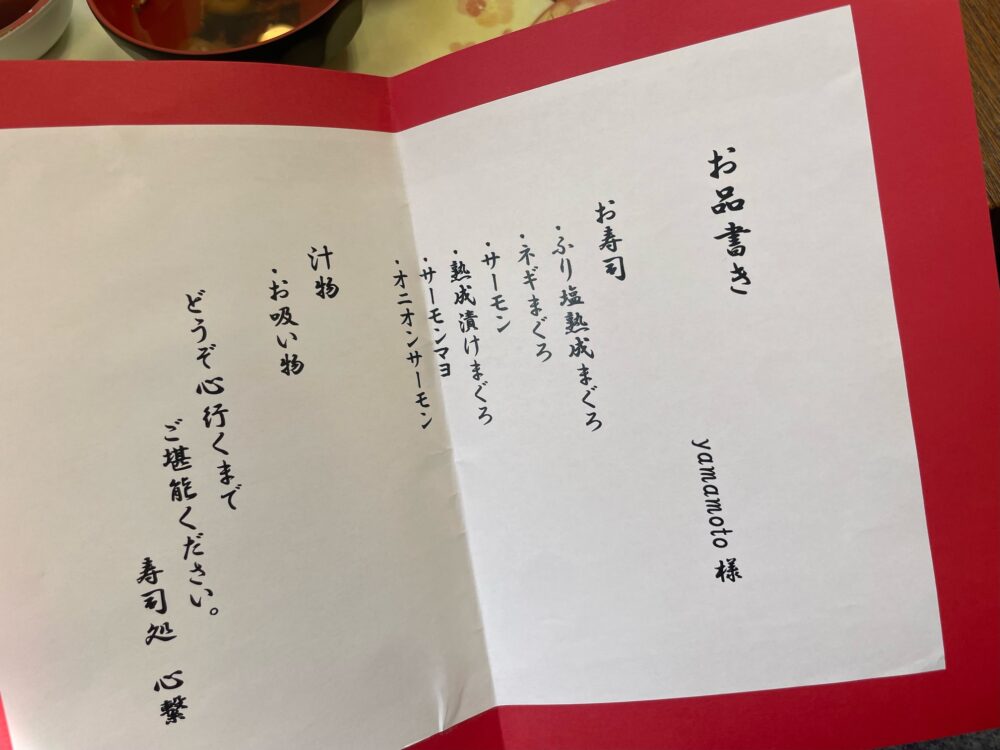 お品書き
yamamoto 様
お寿司
・ふり塩熟成まぐろ
・ネギまぐろ
・サーモン
・熟成漬けまぐろ
・サーモンマヨ
・オニオンサーモン
汁物
・お吸い物
どうぞ心行くまで
ご堪能ください。
寿司処 心繋